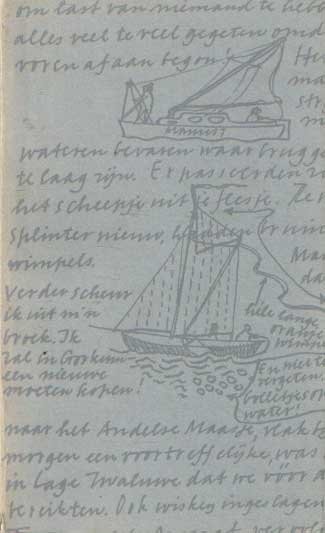 om last van niemand te hebb
alles veel te veel gegeten omd
voren af aan begon! He
ma
str
m
wateren bevaren waar brugge
te laag zijn. Er passeerden
het scheepje uit je feesje. Ze
splinter nieuw, hadden bruin
wimpels. Maa
da
Verder scheur
ik uit m'n
broek. Ik
zal in Gorkum
een nieuwe
moeten kopen!
hele lange
oranje
wimpel
En niet te
vergeten
water!
naar het Andelse Maasje, vlak b
morgen een voortreffelijke, was
in Lage Zwaluwe dat we vóór a
bereikten. Ook wiskey ingeslagen